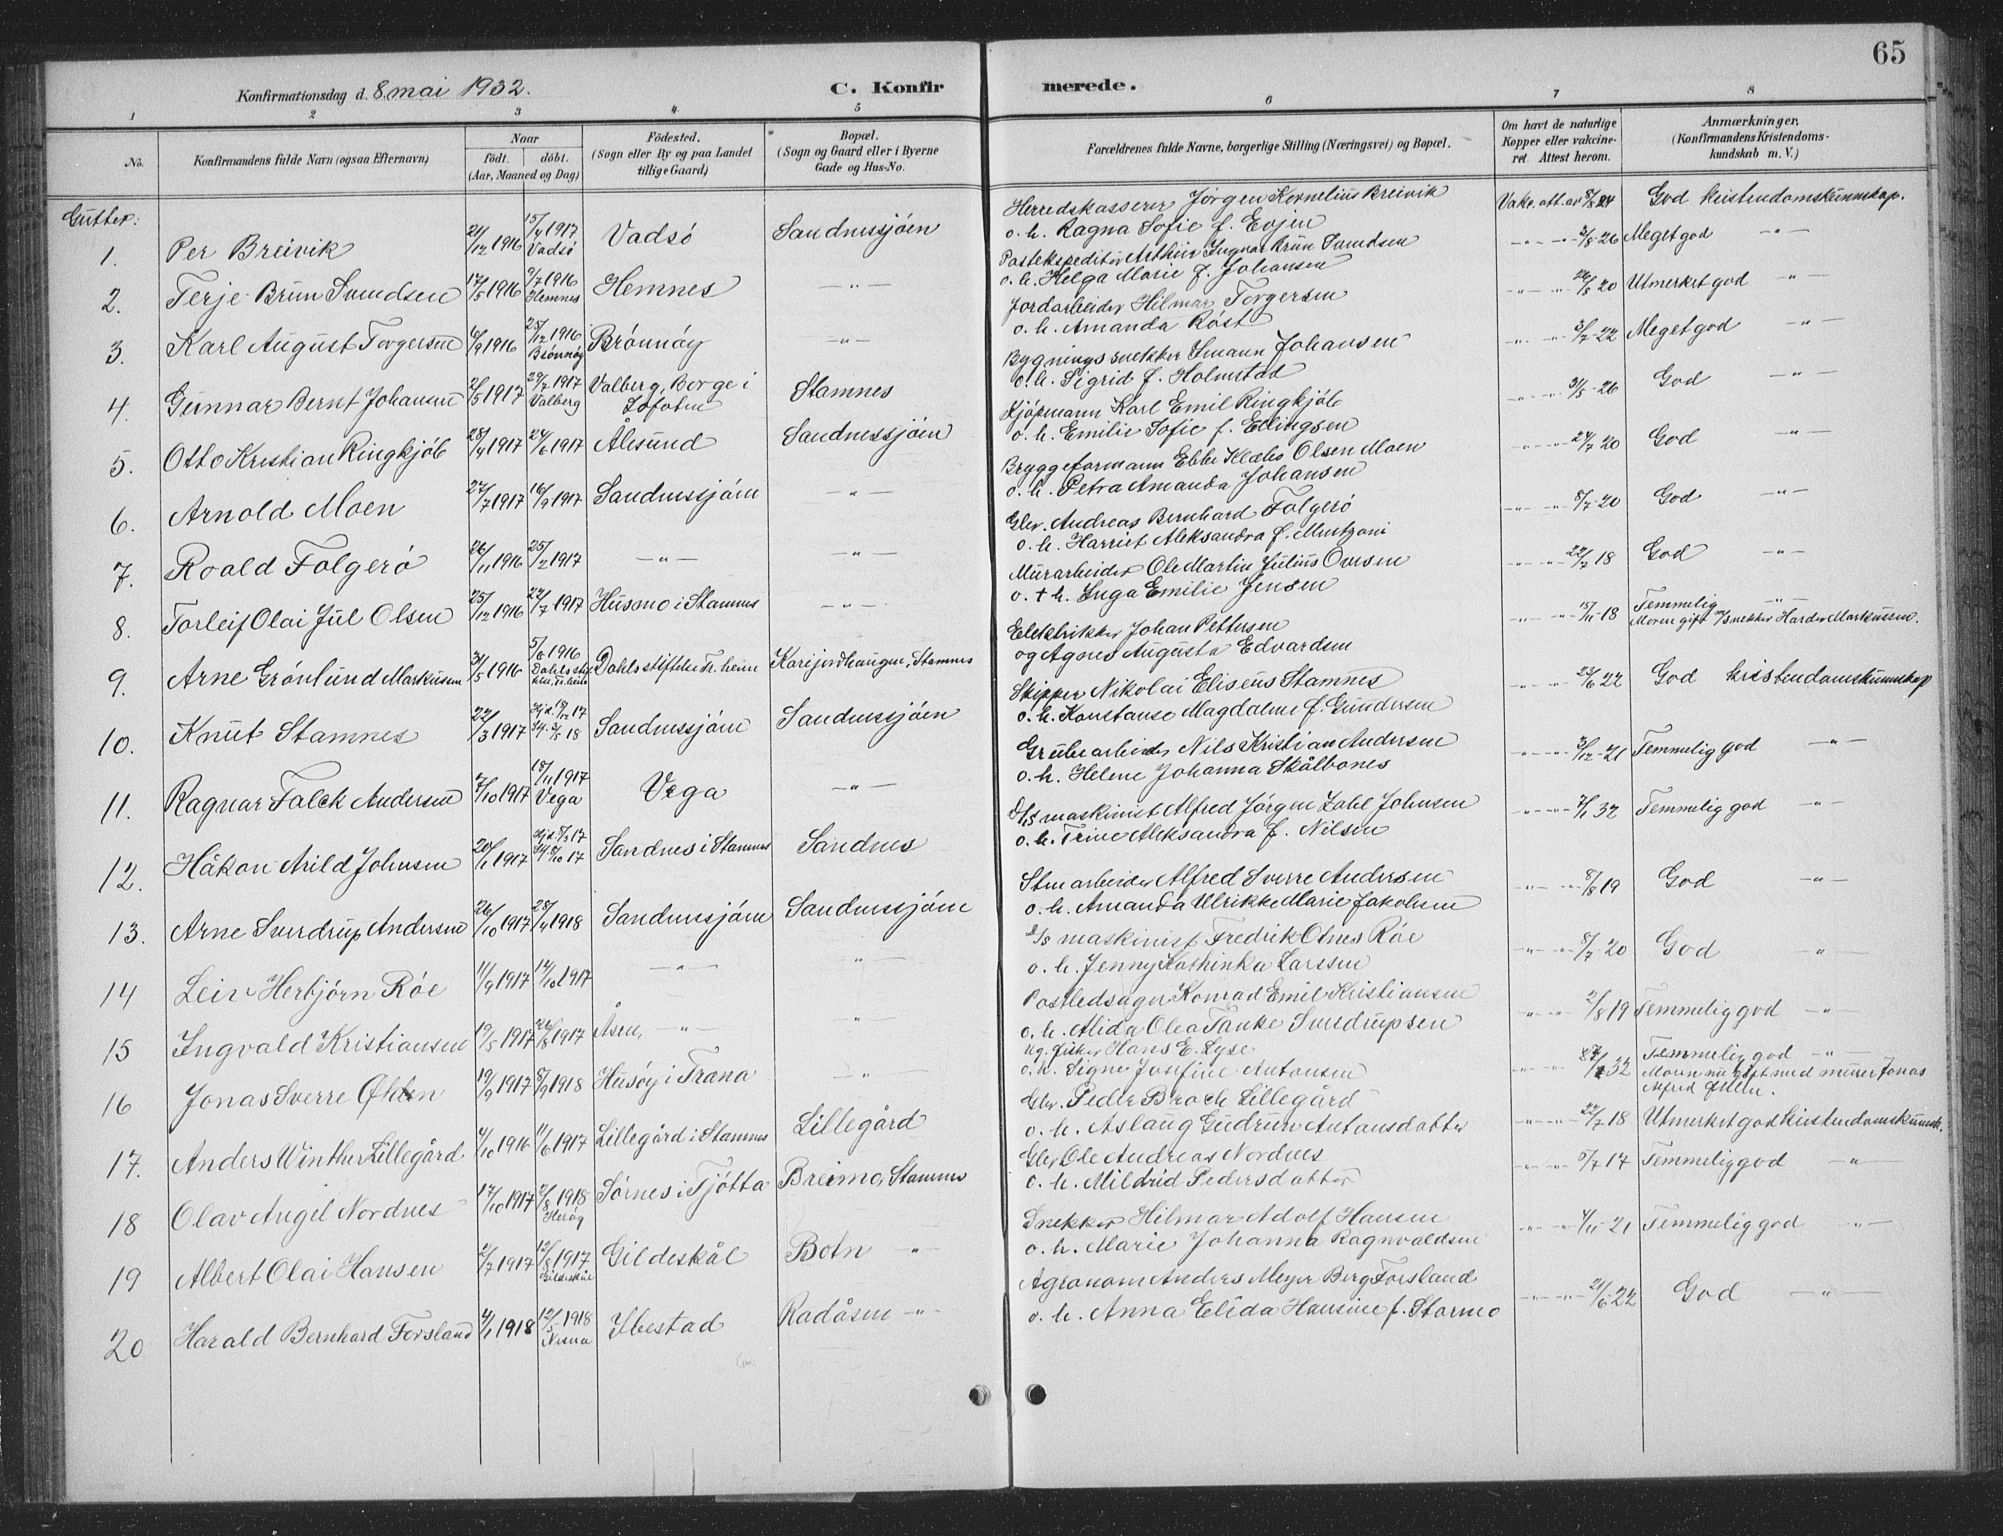 65
Konfirmationsdag d. 8. mai 1932.
C. Konfir merede.
1 2 3 4 5 6 7 8
No.
Konfirmandens fulde Navn (ogsaa Efternavn)
Naar
født. døbt.
(Aar, Maaned og Dag)
Fødested.
(Sogn eller By og paa Landet
tillige Gaard)
Bopæl.
(Sogn og Gaard eller i Byerne
Gade og Hus-No.
Forældrenes fulde Navne, borgerlige Stilling (Næringsvei) og Bopæl.
Om havt de naturlige
Kopper eller vakcine-
ret. Attest herom.
Anmærkninger.
(Konfirmandens Kristendoms-
kundskab m. V.)
Gutter:
1. Per Breivik 21/12 1916 15/4 1917 Vadsø Vadsø Sandnessjøen
Herredskasserer Jørgen Kornelius Breivik
o. h. Ragna Sofie f. Evjen
Vakc. att. av 5/8 24 God kristendomskunnskap.
2. Terje Brun Svendsen 17/5 1916 9/7 1916 Hemnes Hemnes —"—
Postekspeditør Arthur Ingvar Brun Svendsen
o. h. Helga Marie f. Johansen
—"— —"— 3/8 26 Meget god —"—
3. Karl August Torgersen 6/9 1916 25/12 1916 Brønnøy Brønnøy —"—
Jordarbeider Hilmar Torgersen
o. h. Amanda Røst
—"— —"— 26/8 20 Utmerket god —"—
4. Gunnar Bernt Johansen 2/5 1917 29/7 1917 Valberg Valberg, Borge i Lofoten Stamnes
Bygningssnekker Johansen
o. h. Sigrid f. Holmstad
—"— —"— 3/7 22 Meget god —"—
5. Otto Kristian Ringkjøb 28/4 1917 24/6 1917 Ålesund Sandnessjøen
Kjøpmann Karl Emil Ringkjøb
o. h. Emilie Sofie f. Ellingsen
—"— —"— 31/5 26 God —"—
6. Arnold Moen 27/7 1917 16/9 1917 Sandnessjøen —"—
Bryggeformann Ebbe Klæbo Olsen Moen
o. h. Petra Amanda Johansen
—"— —"— 24/7 20 God —"—
7. Roald Folgerø 26/11 1916 25/2 1917 —"— —"—
Gbr. Andreas Bernhard Folgerø
o. h. Harriet Aleksandra f.
—"— —"— 8/7 20 God —"—
8. Torleif Olai Jul Olsen 25/12 1916 22/7 1917 Husmo i Stamnes —"—
Murarbeider Ole Martin Julius Ovesen
o. + h. Inga Emilie Jensen
—"— —"— 22/7 18 God —"—
9. Arne Grønlund Markussen 31/5 1916 5/6 1916 Dahls stiftelse Tr.heim Karijordhaugen, Stamnes
Elektrikker Johan Pettersen
og Agnes Augusta Edvardsen
—"— —"— 15/11 18 Temmelig —"—
Moren gift m/snekker Harder Markussen.
10. Knut Stamnes 22/3 1917 Hjd. 19/12 17 St. 3/5 18 Sandnessjøen Sandnessjøen
Skipper Nikolai Eliseus Stamnes
o. h. Konstanse Magdalene f. Gundersen
—"— —"— 23/6 22 God kristendomskunnskap
11. Ragnar Falck Andersen 7/10 1917 18/11 1917 Vega Vega —"—
Grubearbeider Nils Kristian Andersen
o. h. Helene Johanna Skålbones
—"— —"— 3/12 21 Temmelig god —"—
12. Håkon Arild Johnsen 20/1 1917 Sandnes i Stamnes Sandnes
D/s maskinist Alfred Jørgen Zahl Johnsen
o. h. Trine Aleksandra f. Nilsen
—"— —"— 7/1 32 Temmelig god —"—
13. Arne Sverdrup Andersen 26/10 1917 28/4 1918 Sandnessjøen Sandnessjøen
Stenarbeider Alfred Sverre Andersen
o. h. Amanda Ulrikke Marie Jakobsen
—"— —"— 8/8 19 God —"—
14 Leiv Herbjørn Røe 11/9 1917 14/10 1917 —"— —"—
D/s maskinist Fredrik Otnes Røe
o. h. Jenny Kathinka Larssen
—"— —"— 8/7 20 God "
15 Ingvald Kristiansen 19/5 1917 26/8 1917 Åsen, —"— "
Postledsager Konrad Emil Kristiansen
o. h. Alida Olea Tanke Sverdrupsen
—"— —"— 2/8 19 Temmelig god —"—
16 Jonas Sverre Ølden 19/9 1917 8/9 1918 Husøy i Træna "
Ug. fisker Hans E. Lyse
o. h. Signe Josefine Antonsen
32 Temmelig god —"—
Moren nu gift med murer Jonas
Alfred Ølden.
17. Anders Winther Lillegård 4/10 1916 11/6 1917 Lillegård i Stamnes Lillegård
Gbr. Peder Broch Lillegård
o. h. Aslaug Gudrun Antonsdatter
—"— —"— 22/7 18 Utmerket god kristendomskunnsk.
18 Olav Angel Nordnes 17/10 1917 4/8 1918 Herøy Sørnes i Tjøtta Breimo, Stamnes
Gbr Ole Andreas Nordnes
o. h. Mildrid Pedersdatter
—"— —"— 17 Temmelig god —"—
19 Albert Olai Hansen 2/7 1917 12/8 1917 Gildeskål Gildeskål Botn —"—
Snekker Hilmar Adolf Hansen
o. h. Marie Johanna Ragnvaldsen
—"— —"— 4/11 21 Temmelig god —"—
20 Harald Bernhard Forsland 4/1 1918 12/5 1918 Nesna Ibestad Radåsen —"—
Agronom Anders Meyer Berg Forsland
o. h. Anna Elida Hansine f. Stormo
—"— —"— 21/6 22 God —"—